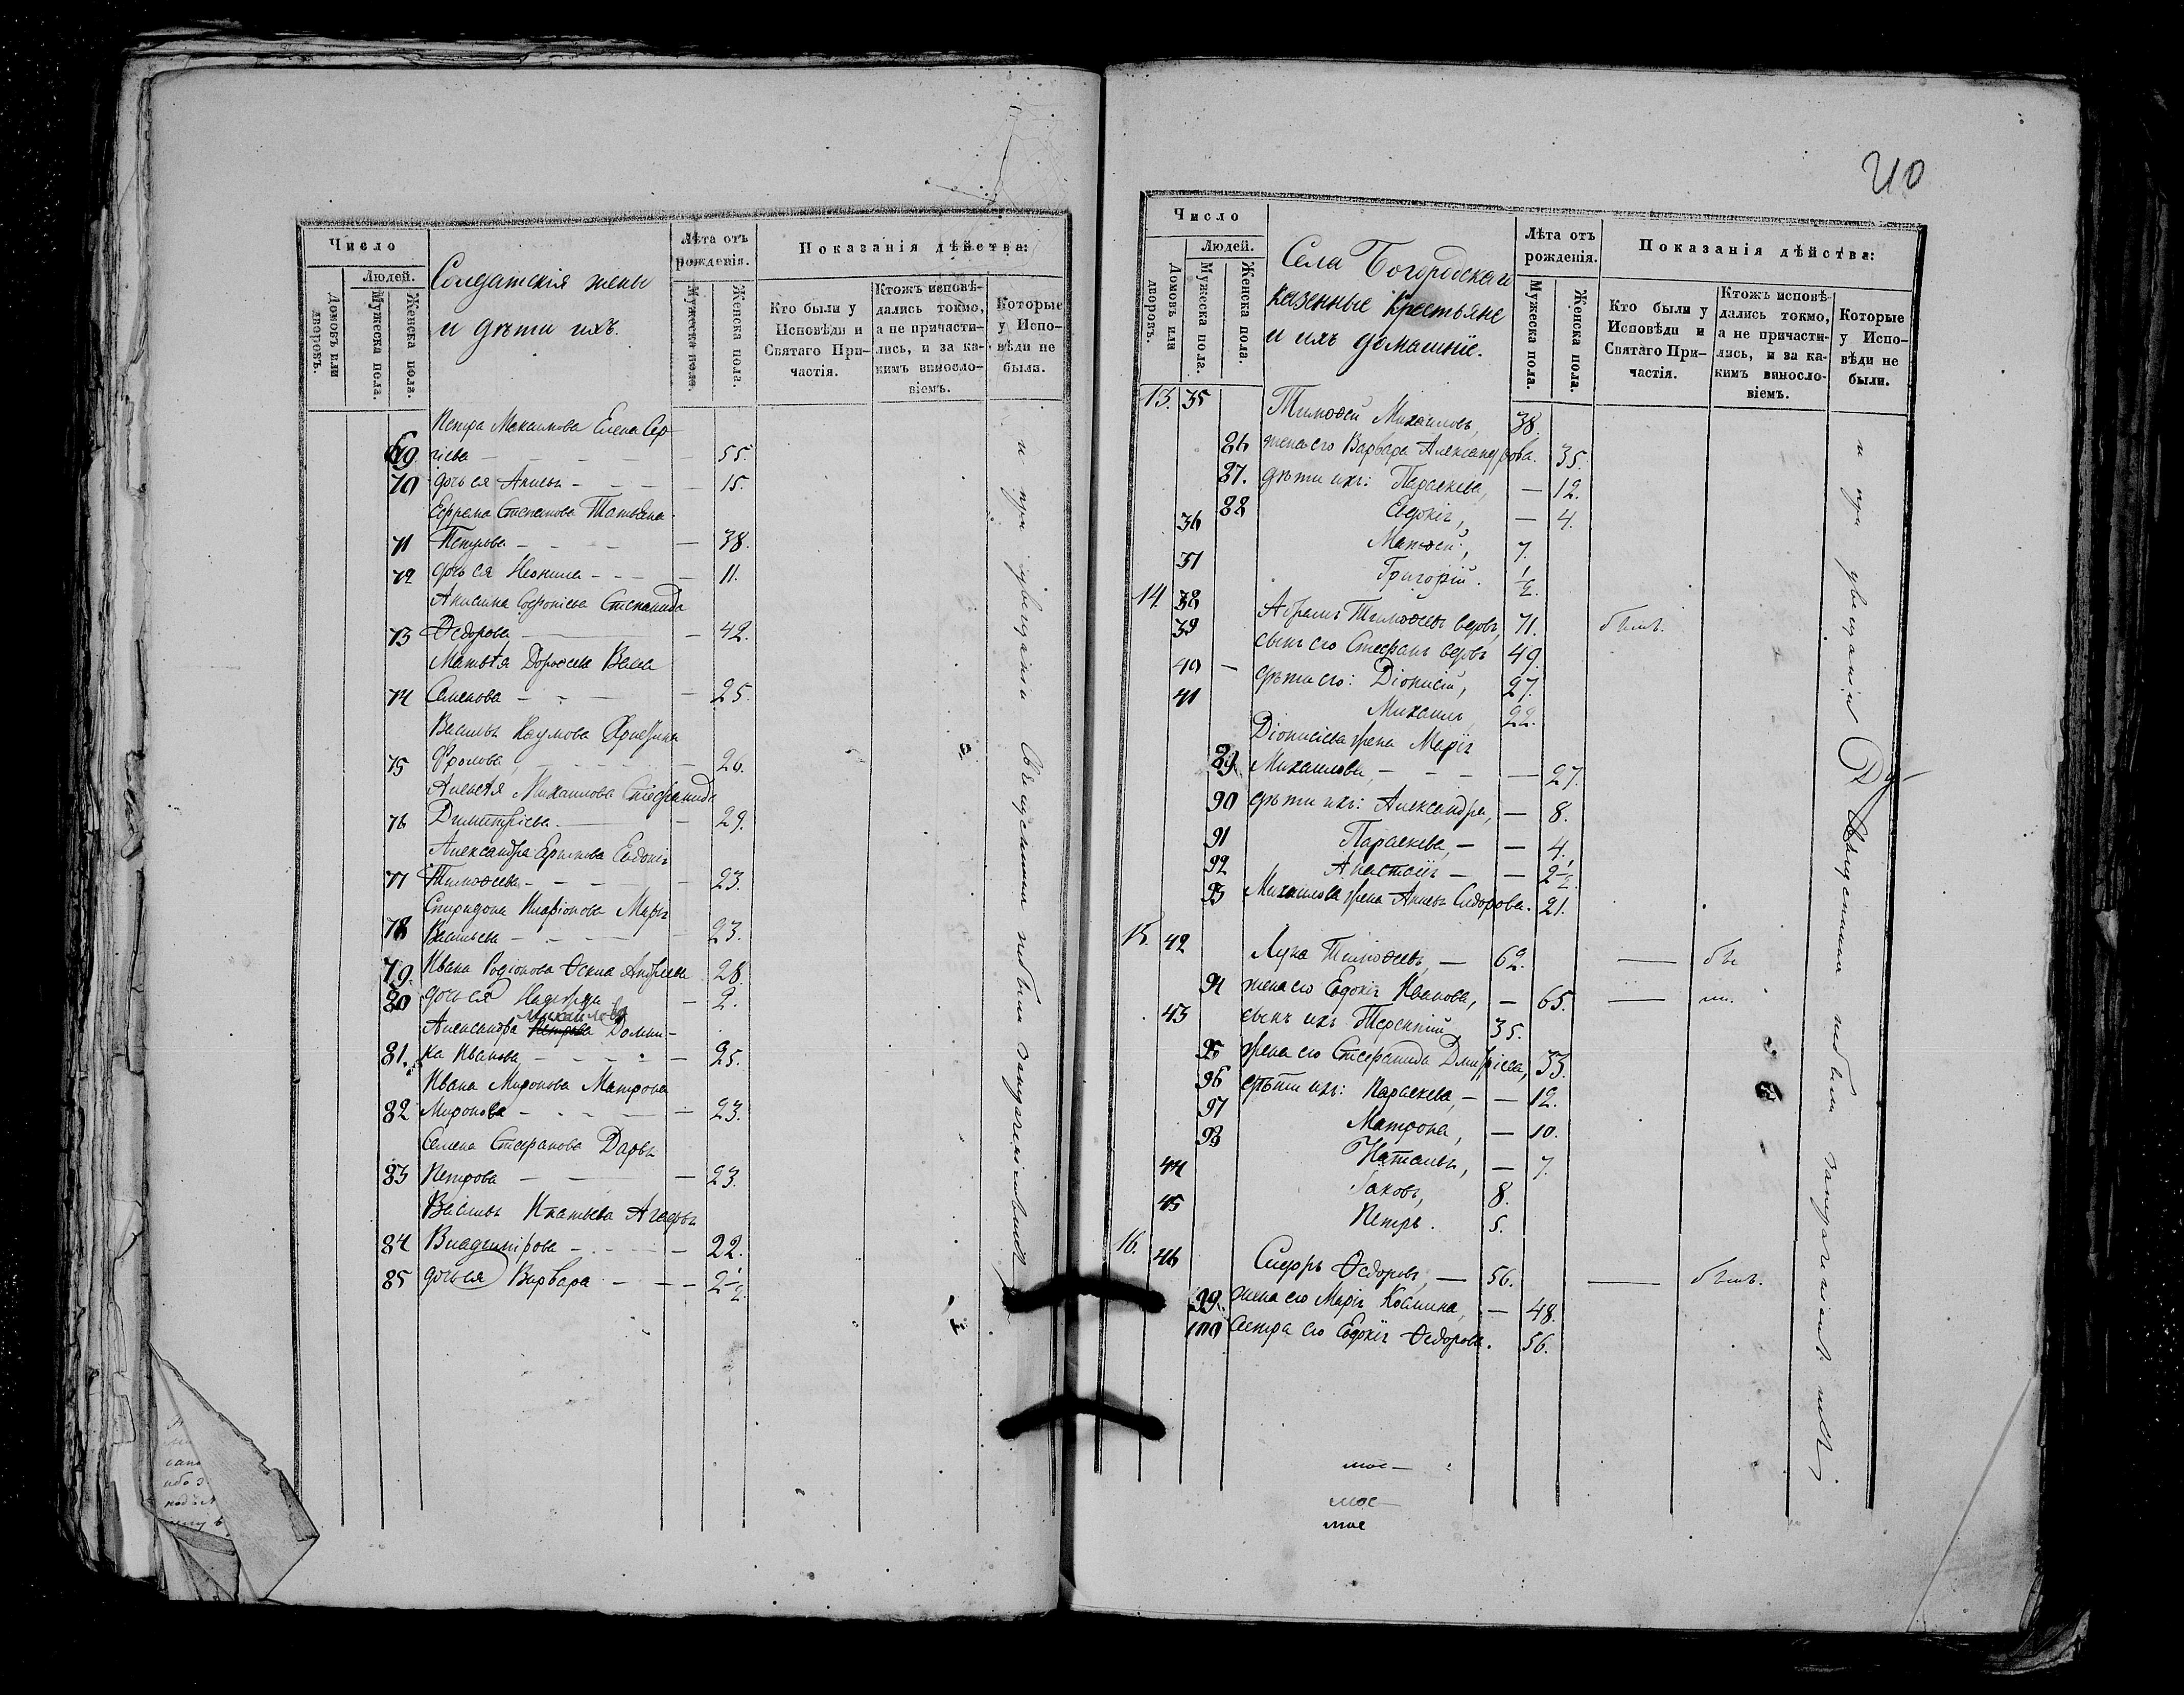 Число
Людей.
Домовъ или дворовъ.
Мужеска пола.
Женска пола.
Солдатскія жены
и дѣти ихъ.
Лѣта отъ рожденія.
Мужеска пола.
Женска пола.
Показанія дѣйства:
Кто были у Исповѣди и Святаго При-
частія.
Ктожъ исповѣ-
дались токмо,
а не причасти-
лись, и за ка-
кимъ виносло-
віемъ.
Которые
у Испо-
вѣди не
были.
Петра Максимова Елена Сер-
69 гіева — 55.
70 дочь ея Анисья — 15.
Ефрема Степанова Татьяна
71 Петрова — 38.
72 дочь ея Неонила — 11.
Анисима Софоніева Степанида
73 Ѳедорова — 42.
Матвѣя Дороѳеева Васса
74 Семенова — 25.
Василья Наумова Христина
75 Фролова, — 26.
Алексѣя Михаилова Стефанида
76 Димитріева — 29.
Александра Ермилова Евдокія
77 Тимоѳеева — 23.
Спиридона Иларіонова Марья
78 Васильева — 23.
79 Ивана Родіонова Ѳекла Андреева 28.
80 дочь ея Надежда — 2.
Михаилова
Александра Петрова Домни-
81. ка Иванова — 25.
Ивана Миронова Матрона
82 Миронова — 23.
Семена Стефанова Дарья
83 Петрова — 23.
Василья Игнатьева Агафья
84 Владимірова — 22.
85 дочь ея Варвара — 2 1/2
и при увѣщаніи Священника небыли
210
Число
Людей.
Домовъ или дворовъ.
Мужеска пола.
Женска пола.
Села Богородскаго
казенные крестьяне
и ихъ домашніе.
Лѣта отъ рожденія.
Мужеска пола.
Женска пола.
Показанія дѣйства:
Кто были у
Исповѣди и
Святаго При-
частія.
Ктожъ исповѣ-
дались токмо,
а не причасти-
лись, и за ка-
кимъ виносло-
віемъ.
Которые
у Испо-
вѣди не
были.
13. 35 Тимоѳей Михаиловъ, 38.
86 жена его Варвара Александрова. 35.
87. дѣти ихъ: Параскева, — 12.
88 Евдокія, — 4.
36 Матѳей, 7.
37 Григорій. 1/2.
14. 38 Абрамъ Тимоѳеевъ вдовъ, 71. былъ.
39 сынъ его Стефанъ вдовъ 49.
40 — дѣти его: Діонисій, 27.
41 Михаилъ, 22.
Діонисіева жена Марія
89. Михаилова, — 27.
90 дѣти ихъ: Александра, — 8.
91 Параскева, — 4.
92 Анастасія — 2 1/2.
93 Михаилова жена Анисья Сидорова. 21.
15. 42 Лука Тимоѳеевъ, — 62. —
94 жена его Евдокія Иванова, — 65. —
43 сынъ ихъ Терентій 35.
95 жена его Стефанида Дмитріева, 33.
96 дѣти ихъ: Параскева, — 12.
97 Матрона, — 10.
98 Наталья, — 7.
44 Іаковъ, 8.
45 Петръ. 5.
16. 46 Сидоръ Ѳедоровъ, — 56. — былъ.
99. жена его Марія Козмина, — 48.
100 сестра его Евдокія Ѳедорова. 56.
и при увѣщаніи Священника небыли
тое —
тое —
тое